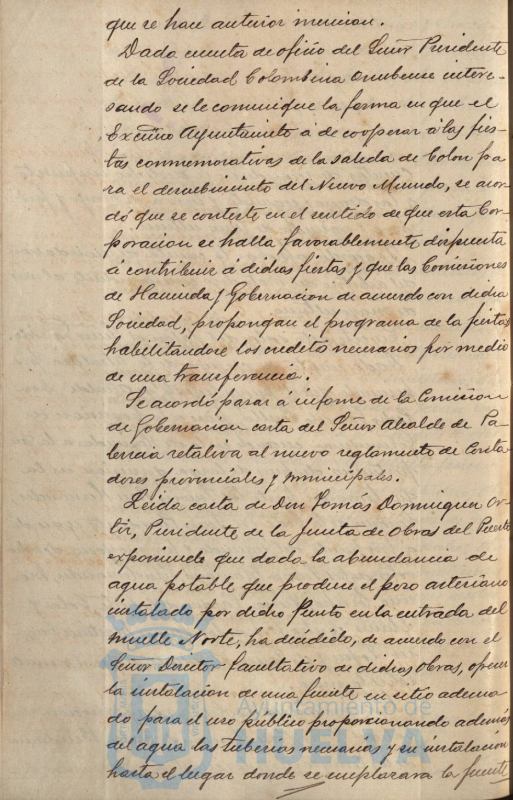 que se hace anterior mencion.
Dada cuenta de oficio del Señor Presidente
de la Sociedad Colombina Onubense intere-
sando se le comunique la forma en que el
Excmo Ayuntamiento á de cooperar á las fies-
tas conmemorativas de la salida de Colon pa
ra el descubrimiento del Nuevo Mundo, se acor-
dó que se conteste en el sentido de que esta Cor-
poracion se halla favorablemente dispuesta
á contribuir á dichas fiestas y que las Comisiones
de Hacienda y Gobernacion de acuerdo con dicha
Sociedad, propongan el programa de la fiestas
habilitandose los creditos necesarios por medio
de una transferencia.
Se acordó pasar á informe de la Comision
de Gobernacion carta del Señor Alcalde de Pa-
lencia retaliva al nuevo reglamento de Conta
dores provinciales y municipales.
Leida carta de Don Tomás Dominguez Or-
tiz, Presidente de la Junta de Obras del Puerto
exponiendo que dada la abundancia de
agua potable que produce el pozo artesiano
instalado por dicho Puerto en la entrada del
muelle Norte, ha decidido, de acuerdo con el
Señor Director facultativo de dichas Obras, ofrecer
la instalacion de una fuente en sitio adecua
do para el uso público proporcionando además
del agua las tuberias necesarias y su instalacion
hasta el lugar donde se emplazara la fuente
Ayuntamiento de
HUELVA